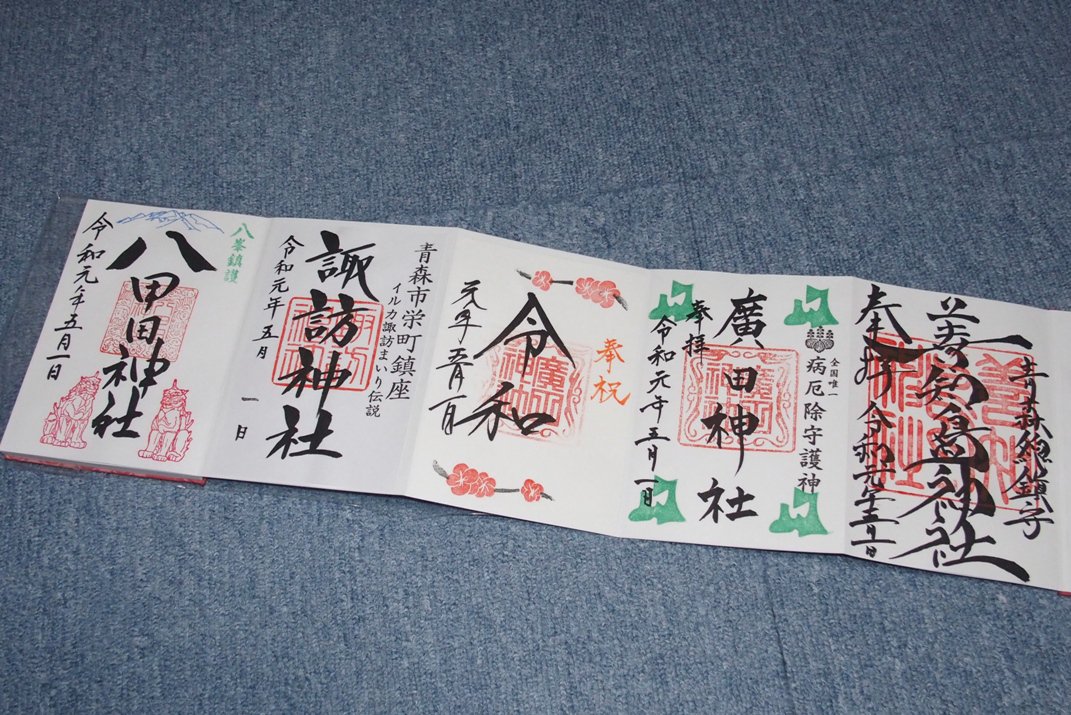 一
青森総鎮守
善知鳥神社
奉拝 令和元年五月一日
全国唯一
病厄除守護神
廣田神社
奉拝
令和元年五月一日
奉祝
令和
元年五月一日
青森市栄町鎮座
イルカ諏訪まいり伝説
諏訪神社
令和元年五月
一日
八峯鎮護
八甲田神社
令和元年五月一日